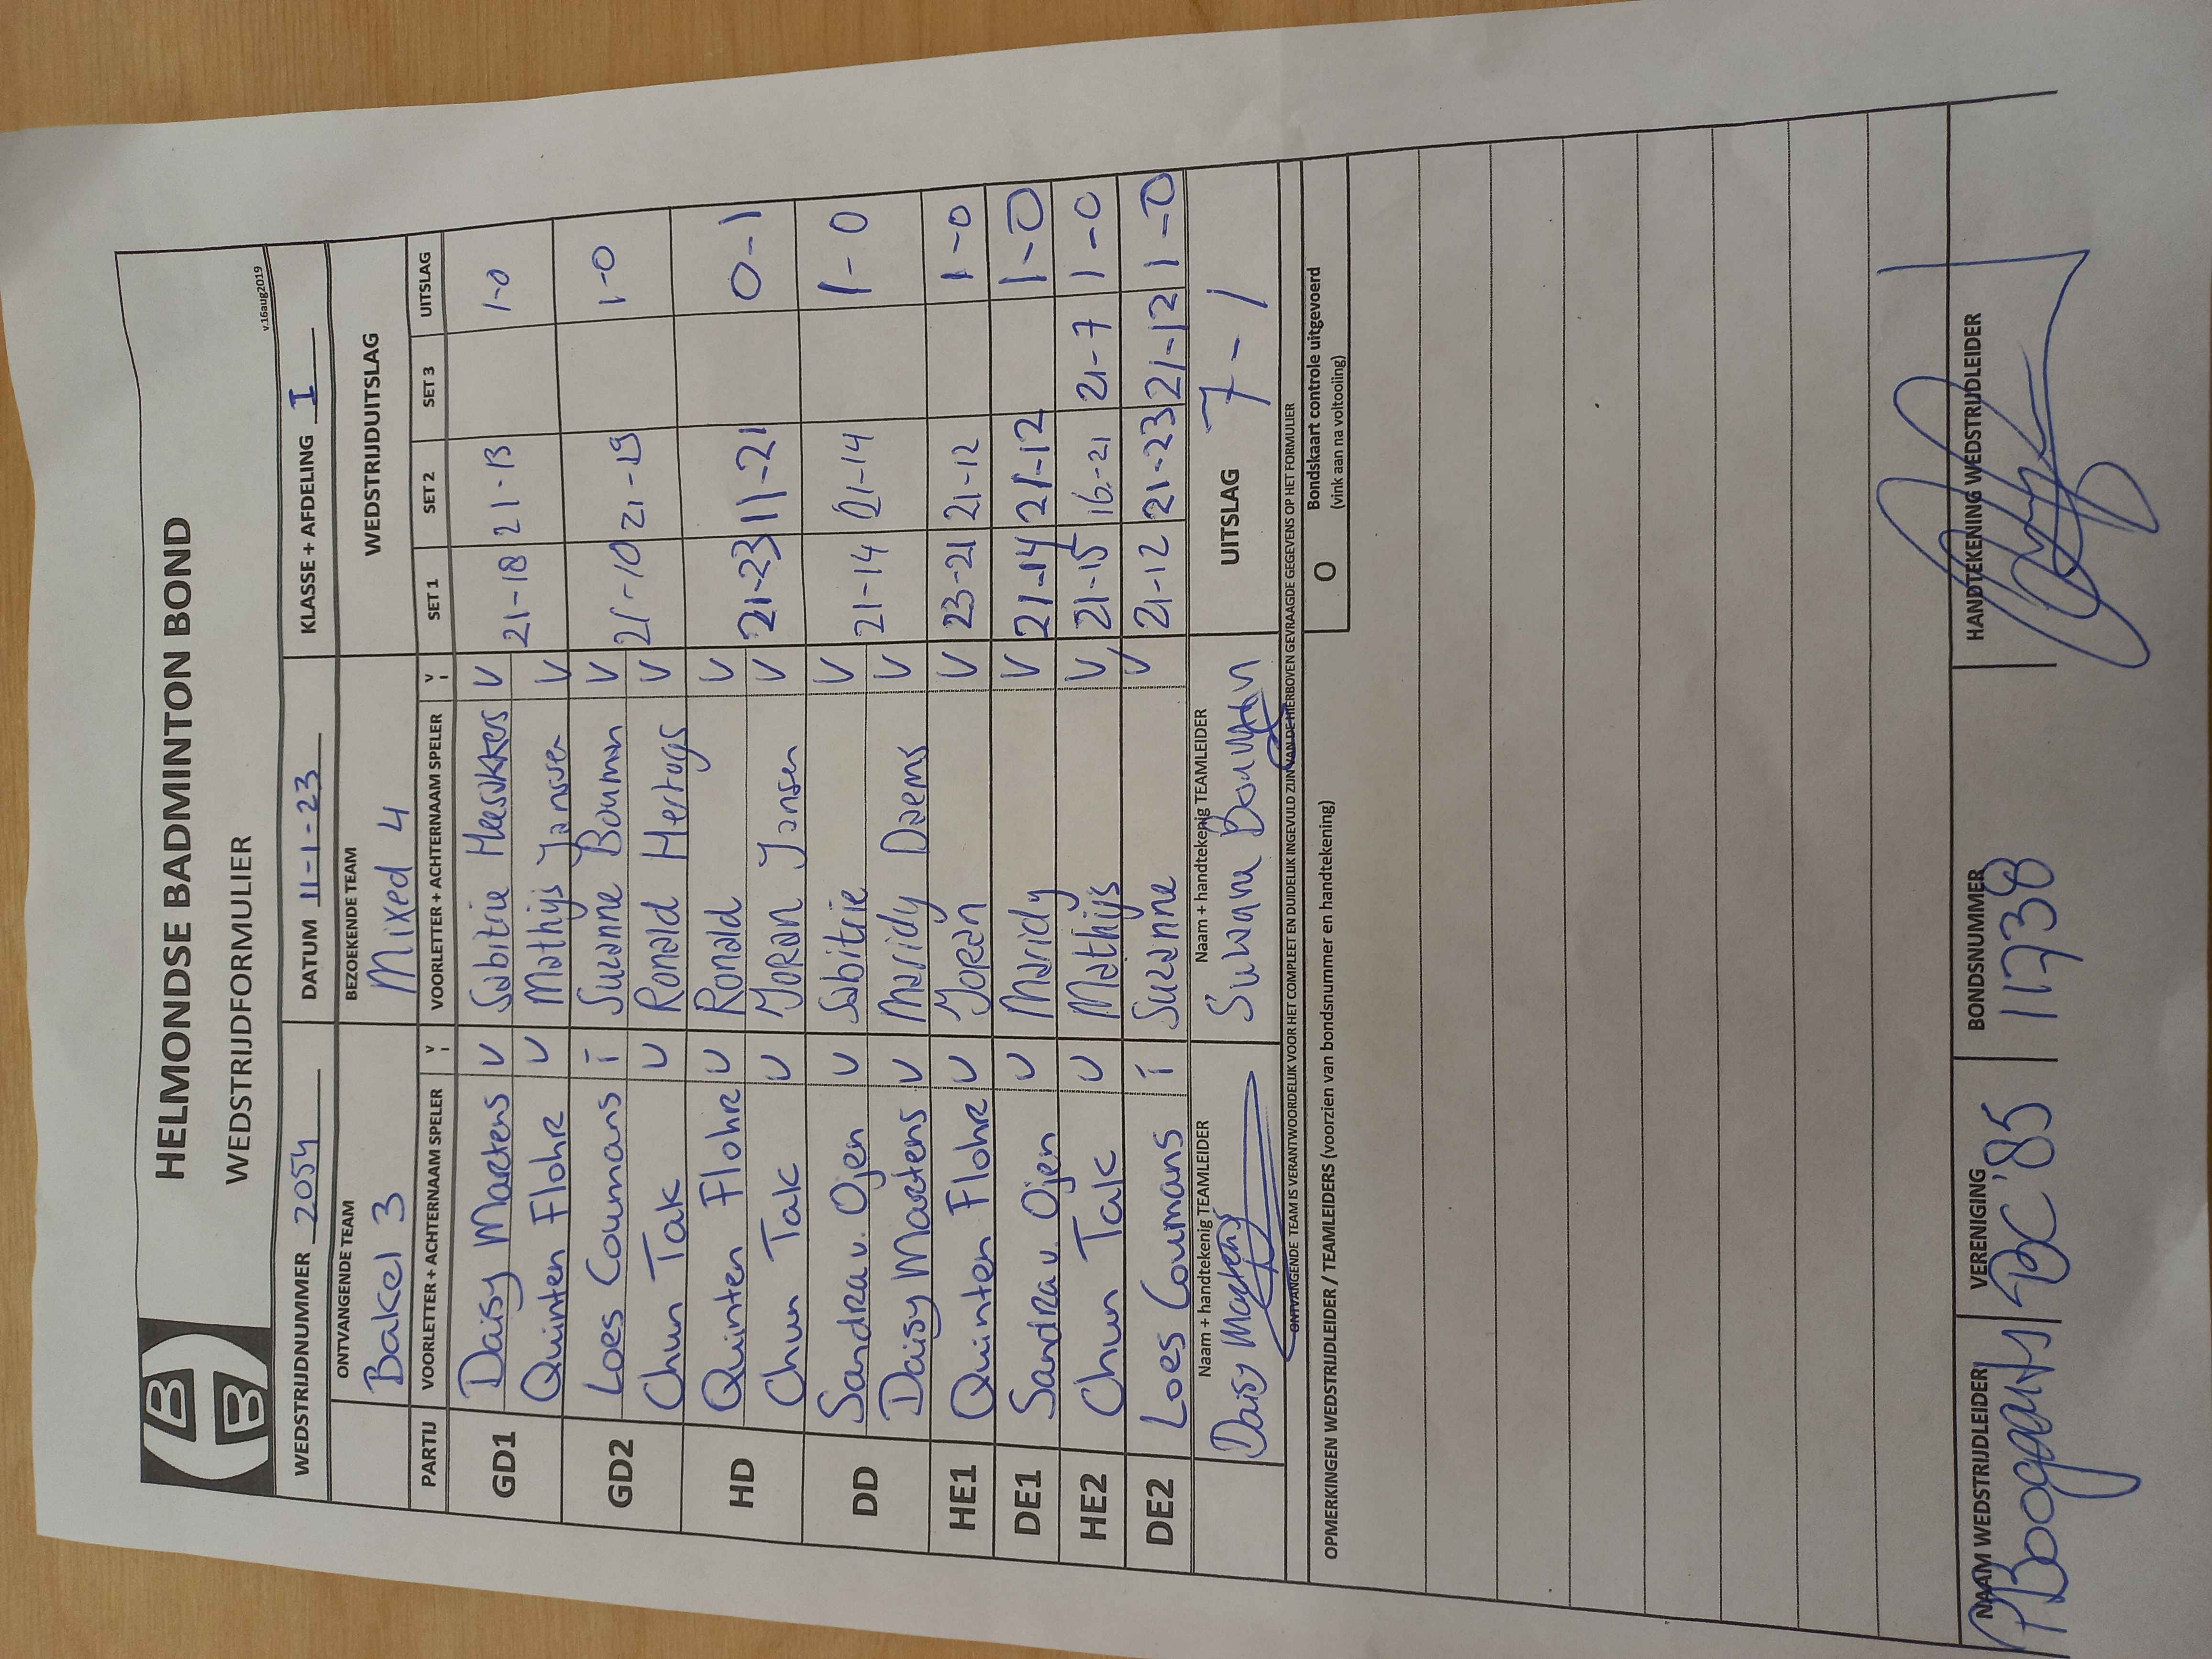 HBB
HELMONDSE BADMINTON BOND
WEDSTRIJDFORMULIER
v.16aug2019
WEDSTRIJDNUMMER 2054 DATUM 11-1-23 KLASSE + AFDELING I
ONTVANGENDE TEAM BEZOEKENDE TEAM WEDSTRIJDUITSLAG
Bakel 3 Mixed 4
PARTIJ VOORLETTER + ACHTERNAAM SPELER V I VOORLETTER + ACHTERNAAM SPELER V I SET 1 SET 2 SET 3 UITSLAG
GD1 Daisy Martens V Sabitrie Meeskkers V 21-18 21-13 1-0
Quinten Flohr V Mathijs Jansen V
GD2 Loes Coumans I Suzanne Bouman V 21-10 21-19 1-0
Chun Tak V Ronald Hertogs V
HD Quinten Flohr V Ronald V 21-23 11-21 0-1
Chun Tak V Joran Jansen V
DD Sandra v. Ojen V Sabitrie V 21-14 21-14 1-0
Daisy Martens V Maridy Daems V
HE1 Quinten Flohr V Joran V 23-21 21-12 1-0
DE1 Sandra v. Ojen V Maridy V 21-14 21-12 1-0
HE2 Chun Tak V Mathijs V 21-15 16-21 21-7 1-0
DE2 Loes Coumans I Suzanne V 21-12 21-23 21-12 1-0
Naam + handtekenig TEAMLEIDER Naam + handtekenig TEAMLEIDER UITSLAG 7-1
Daisy Martens Suzanne Bouman
ONTVANGENDE TEAM IS VERANTWOORDELIJK VOOR HET COMPLEET EN DUIDELIJK INGEVULD ZIJN VAN DE HIERBOVEN GEVRAAGDE GEGEVENS OP HET FORMULIER
OPMERKINGEN WEDSTRIJDLEIDER / TEAMLEIDERS (voorzien van bondsnummer en handtekening) O Bondskaart controle uitgevoerd
(vink aan na voltooiing)
NAAM WEDSTRIJDLEIDER VERENIGING BONDSNUMMER HANDTEKENING WEDSTRIJDLEIDER
P Boogaarts BC '85 11738